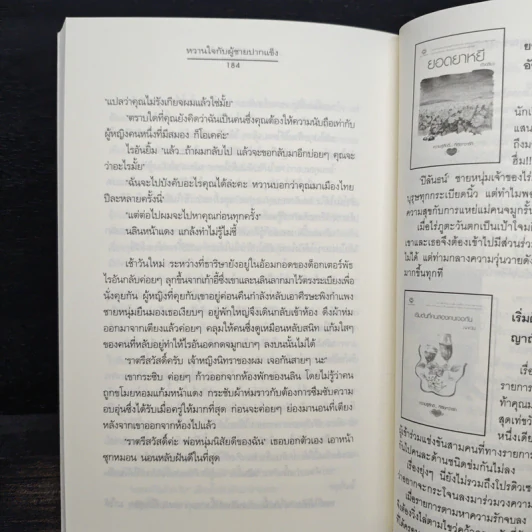 หวานใจกับผู้ชายปากแข็ง
184
"แปลว่าคุณไม่รังเกียจผมแล้วใช่มั้ย"
"ตราบใดที่คุณยังคิดว่าฉันเป็นคนซึ่งคุณต้องให้ความนับถือเท่ากับ
ผู้หญิงคนหนึ่งที่มีสมอง ก็โอเคค่ะ"
ไรอันยิ้ม "แล้ว...ถ้าผมกลับไป แล้วจะขอกลับมาอีกบ่อยๆ คุณจะ
ว่าอะไรมั้ย"
"ฉันจะไปบังคับอะไรคุณได้ล่ะคะ หวานบอกว่าคุณมาเมืองไทย
ปีละหลายครั้งนี่"
"แต่ต่อไปผมจะไปหาคุณก่อนทุกครั้ง"
นลินหน้าแดง แกล้งทำไม่รู้ไม่ชี้
เช้าวันใหม่ ระหว่างที่ธาริษายังอยู่ในอ้อมกอดของด็อกเตอร์พัช
ไรอันกลับค่อยๆ ลุกขึ้นจากเก้าอี้ซึ่งเขาและนลินลากมาไว้ตรงระเบียงเพื่อ
นั่งคุยกัน ผู้หญิงที่คุยกับเขาอยู่ค่อนคืนกำลังหลับเอาศีรษะพิงกำแพง
ชายหนุ่มยืนมองเธอเงียบๆ อยู่พักใหญ่จึงเดินกลับเข้าห้อง ดึงผ้าห่ม
ออกมาจากเตียงแล้วค่อยๆ คลุมให้คนซึ่งดูเหมือนหลับสนิท แก้มใสๆ
ของคนที่หลับอยู่ทำให้ไรอันอดกดจมูกเบาๆ ลงบนนั้นไม่ได้
"ราตรีสวัสดิ์ครับ เจ้าหญิงนิทราของผม เจอกันสายๆ นะ"
เขากระซิบ ค่อยๆ ก้าวออกจากห้องพักของนลิน โดยไม่รู้ว่าคน
ถูกขโมยหอมแก้มหน้าแดง กระชับผ้าห่มราวกับต้องการซึมซับความ
อบอุ่นซึ่งได้รับเมื่อครู่ให้มากที่สุด ก่อนจะค่อยๆ ย่องมานอนที่เตียง
หลังจากเขาออกจากห้องไปแล้ว
"ราตรีสวัสดิ์ค่ะ พ่อหนุ่มนิสัยดีของฉัน" เธอบอกตัวเอง เอาหน้า
ซุกหมอน นอนหลับฝันดีในที่สุด
ยอดยาหยี
นักเ
แสน
ถึงม
ฮึ่ม!!
"ปีลันธน์" ชายหนุ่มเจ้าของไร่
บุรุษทุกกระเบียดนิ้ว แต่ทำไมพอ
ความสุขกับการแหย่แม่คนจมูกรั้น
เมื่อไร่ภูตะวันตกเป็นเป้าโจม
เขาและเธอจึงต้องเข้าไปมีส่วนร่ว
ไม่ได้ แต่ท่ามกลางความวุ่นวายดัง
มากขึ้นทุกที
เริ่ม
ญาณ
เรื่อ
รายการ
ทำคุณ
สุดเท่
หนึ่งเดีย
ผู้เข้าร่วมแข่งขันสามคนที่ทางรายการ
กันไปคนละด้านชนิดข่มกันไม่ลง
เรื่องยุ่งๆ นี้ยังไม่รวมถึงโปรดิวเซ
เมื่อรายการตามหาความรักจบลง